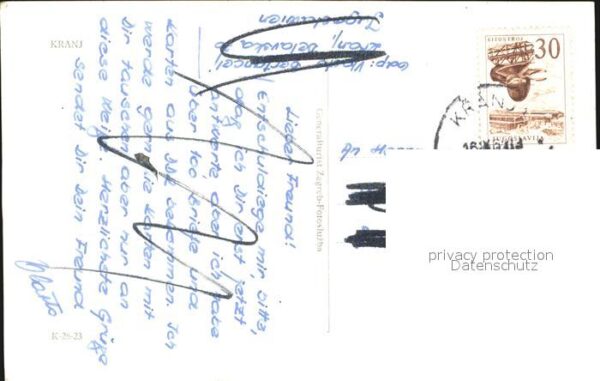 KRANJ
Lieber Freund!
Entschuldige mir, bitte,
daß ich dir erst jetzt
antworte, aber ich habe
über 100 briefe und
karten aus DDR bekommen. Ich
werde gern die karten mit
dir tauschen aber nur an
diese Weise. Herzlichste Grüße
sendet dir dein Freund
Vlasta
odp: Vlasta
Kranj,
Jugoslawien
K-26-23
Generalturist Zagreb-Fotoslužba
30
LITOSTROJ
JUGOSLAVIJA
KRANJ
privacy protection
Datenschutz